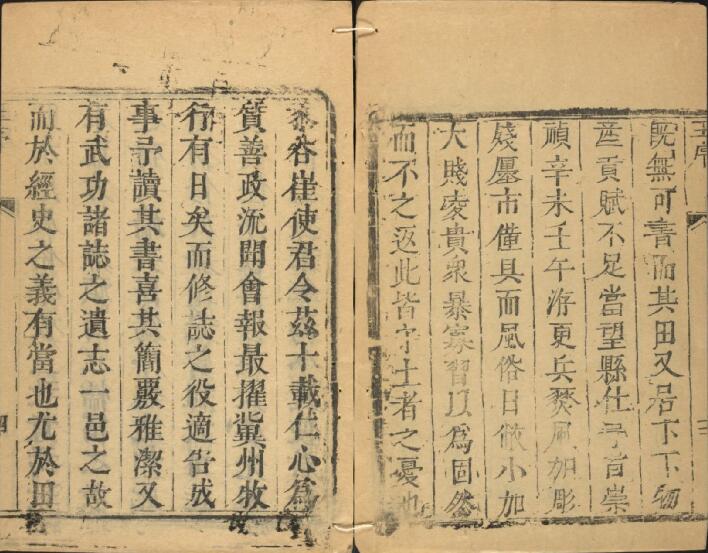 既無可書而其田又居下下物
產貢賦不足當望縣仕崇
禎辛未壬午游更兵加彫
殘廛市僅具而風俗日敝小加
大賤陵貴衆暴寡習以爲固然
而不之返此皆守土者之憂也
谷崔使君令茲十載仁心爲
質善政流聞會報最擢冀州牧
行有日矣而修誌之役適告成
事予讀其書喜其簡覈雅潔又
有武功諸誌之遺志一邑之故
而於經史之義有當也尤於田